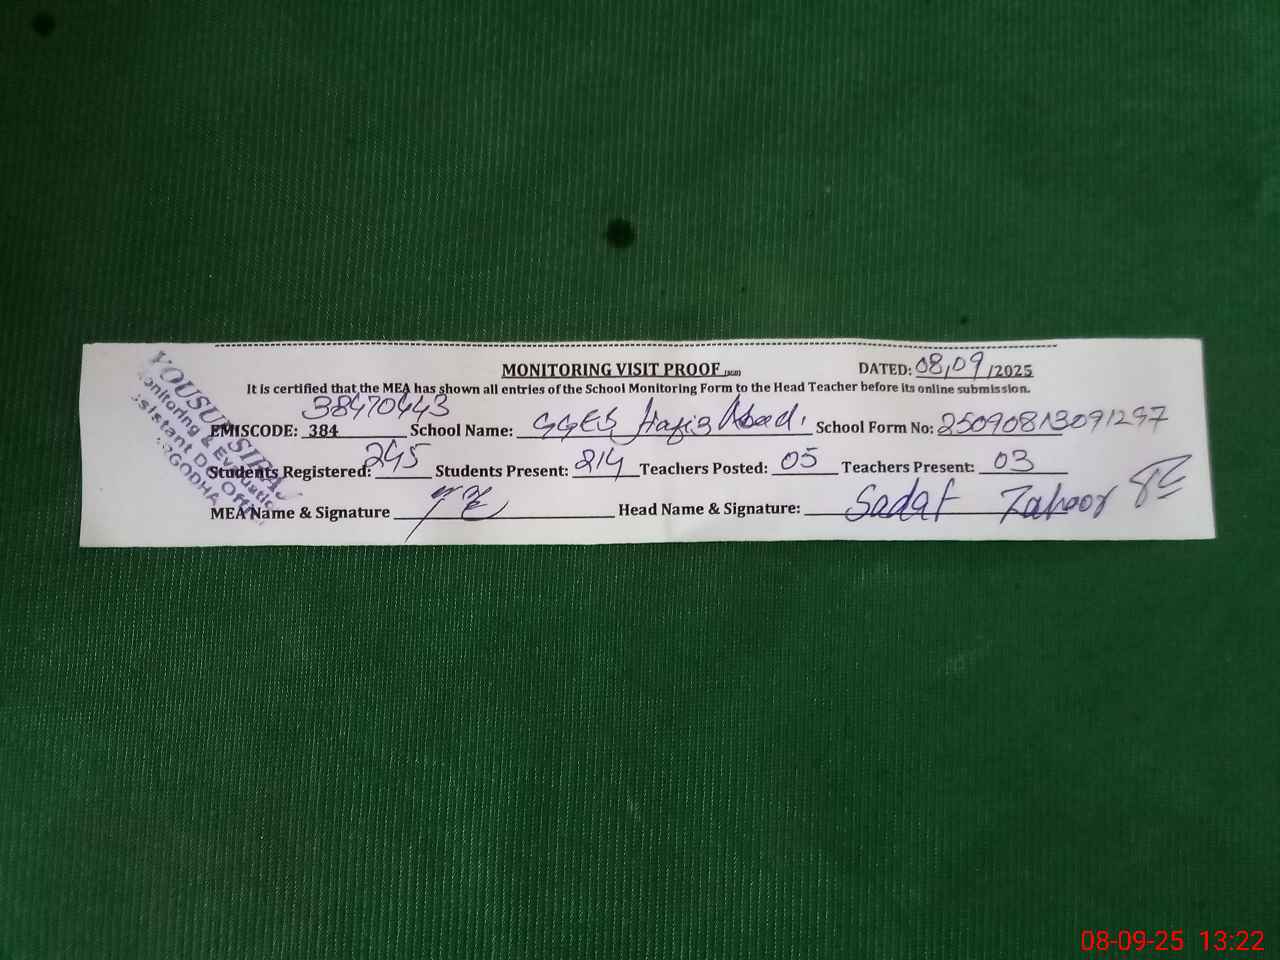 MONITORING VISIT PROOF (SGD) DATED: 08,09/2025
It is certified that the MEA has shown all entries of the School Monitoring Form to the Head Teacher before its online submission.
38470443
EMISCODE: 384 School Name: GGES Hafiz Abad. School Form No: 25090813091297
Students Registered: 245 Students Present: 214 Teachers Posted: 05 Teachers Present: 03
MEA Name & Signature Head Name & Signature: Sadaf Zahoor
YOUSUF SIRAJ
Monitoring & Evaluation
Assistant
SARGODHA
08-09-25 13:22